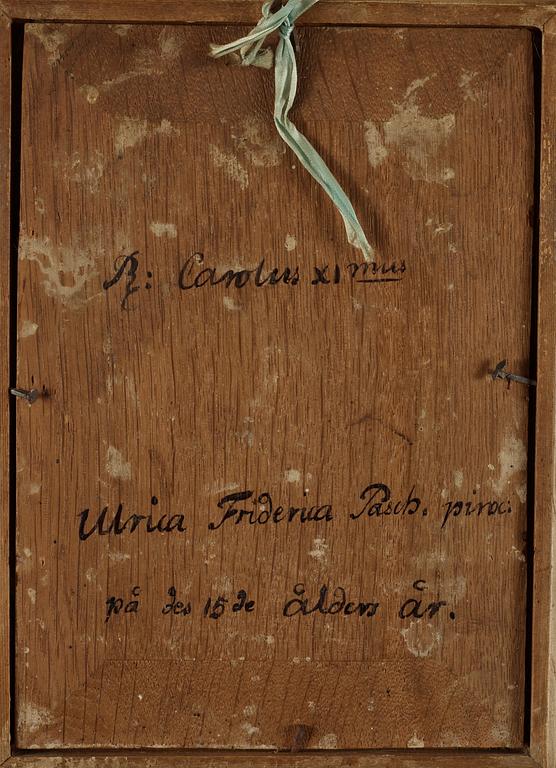 R: Carolus XImus
Ulrica Friderica Pasch. pinxc:
på des 15de ålders år.